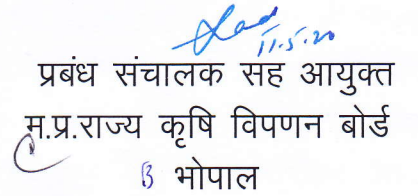 11.5.20
प्रबंध संचालक सह आयुक्त
म.प्र.राज्य कृषि विपणन बोर्ड
भोपाल